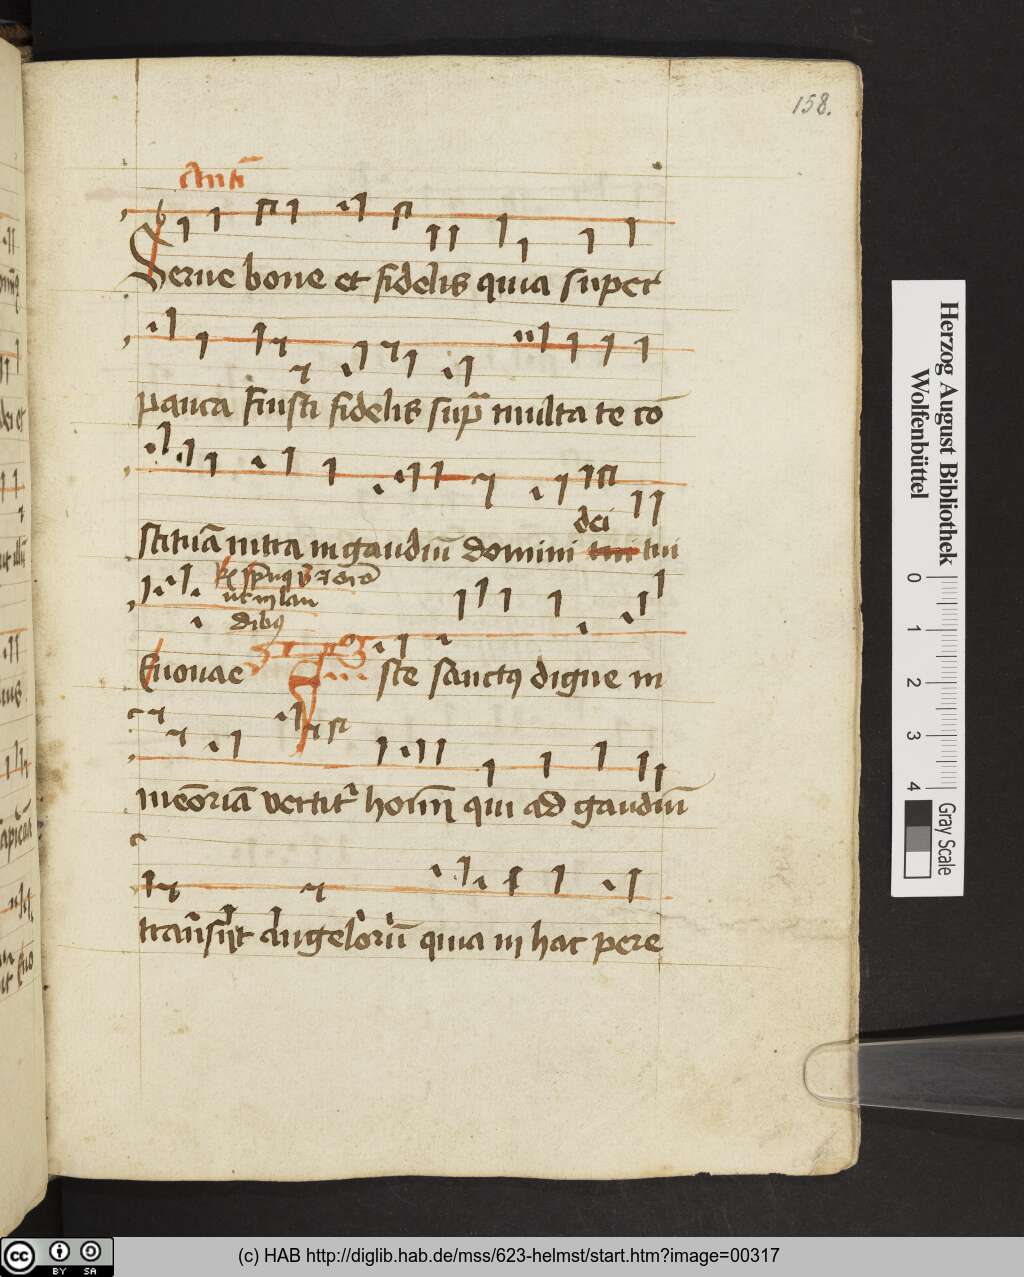 158.
Anti
Serue bone et fidelis quia super
pauca fuisti fidelis sup multa te co
dei
stituā intra in gaudiū domini tui tui
ut in lau
dibus
Euouae
Iste sanctus digne in
meōriā vertit hom qui ad gaudiū
Angelorū quia in hac pere
Herzog August Bibliothek
Wolfenbüttel
0 1 2 3 4 Gray Scale
cc BY SA
(c) HAB http://diglib.hab.de/mss/623-helmst/start.htm?image=00317